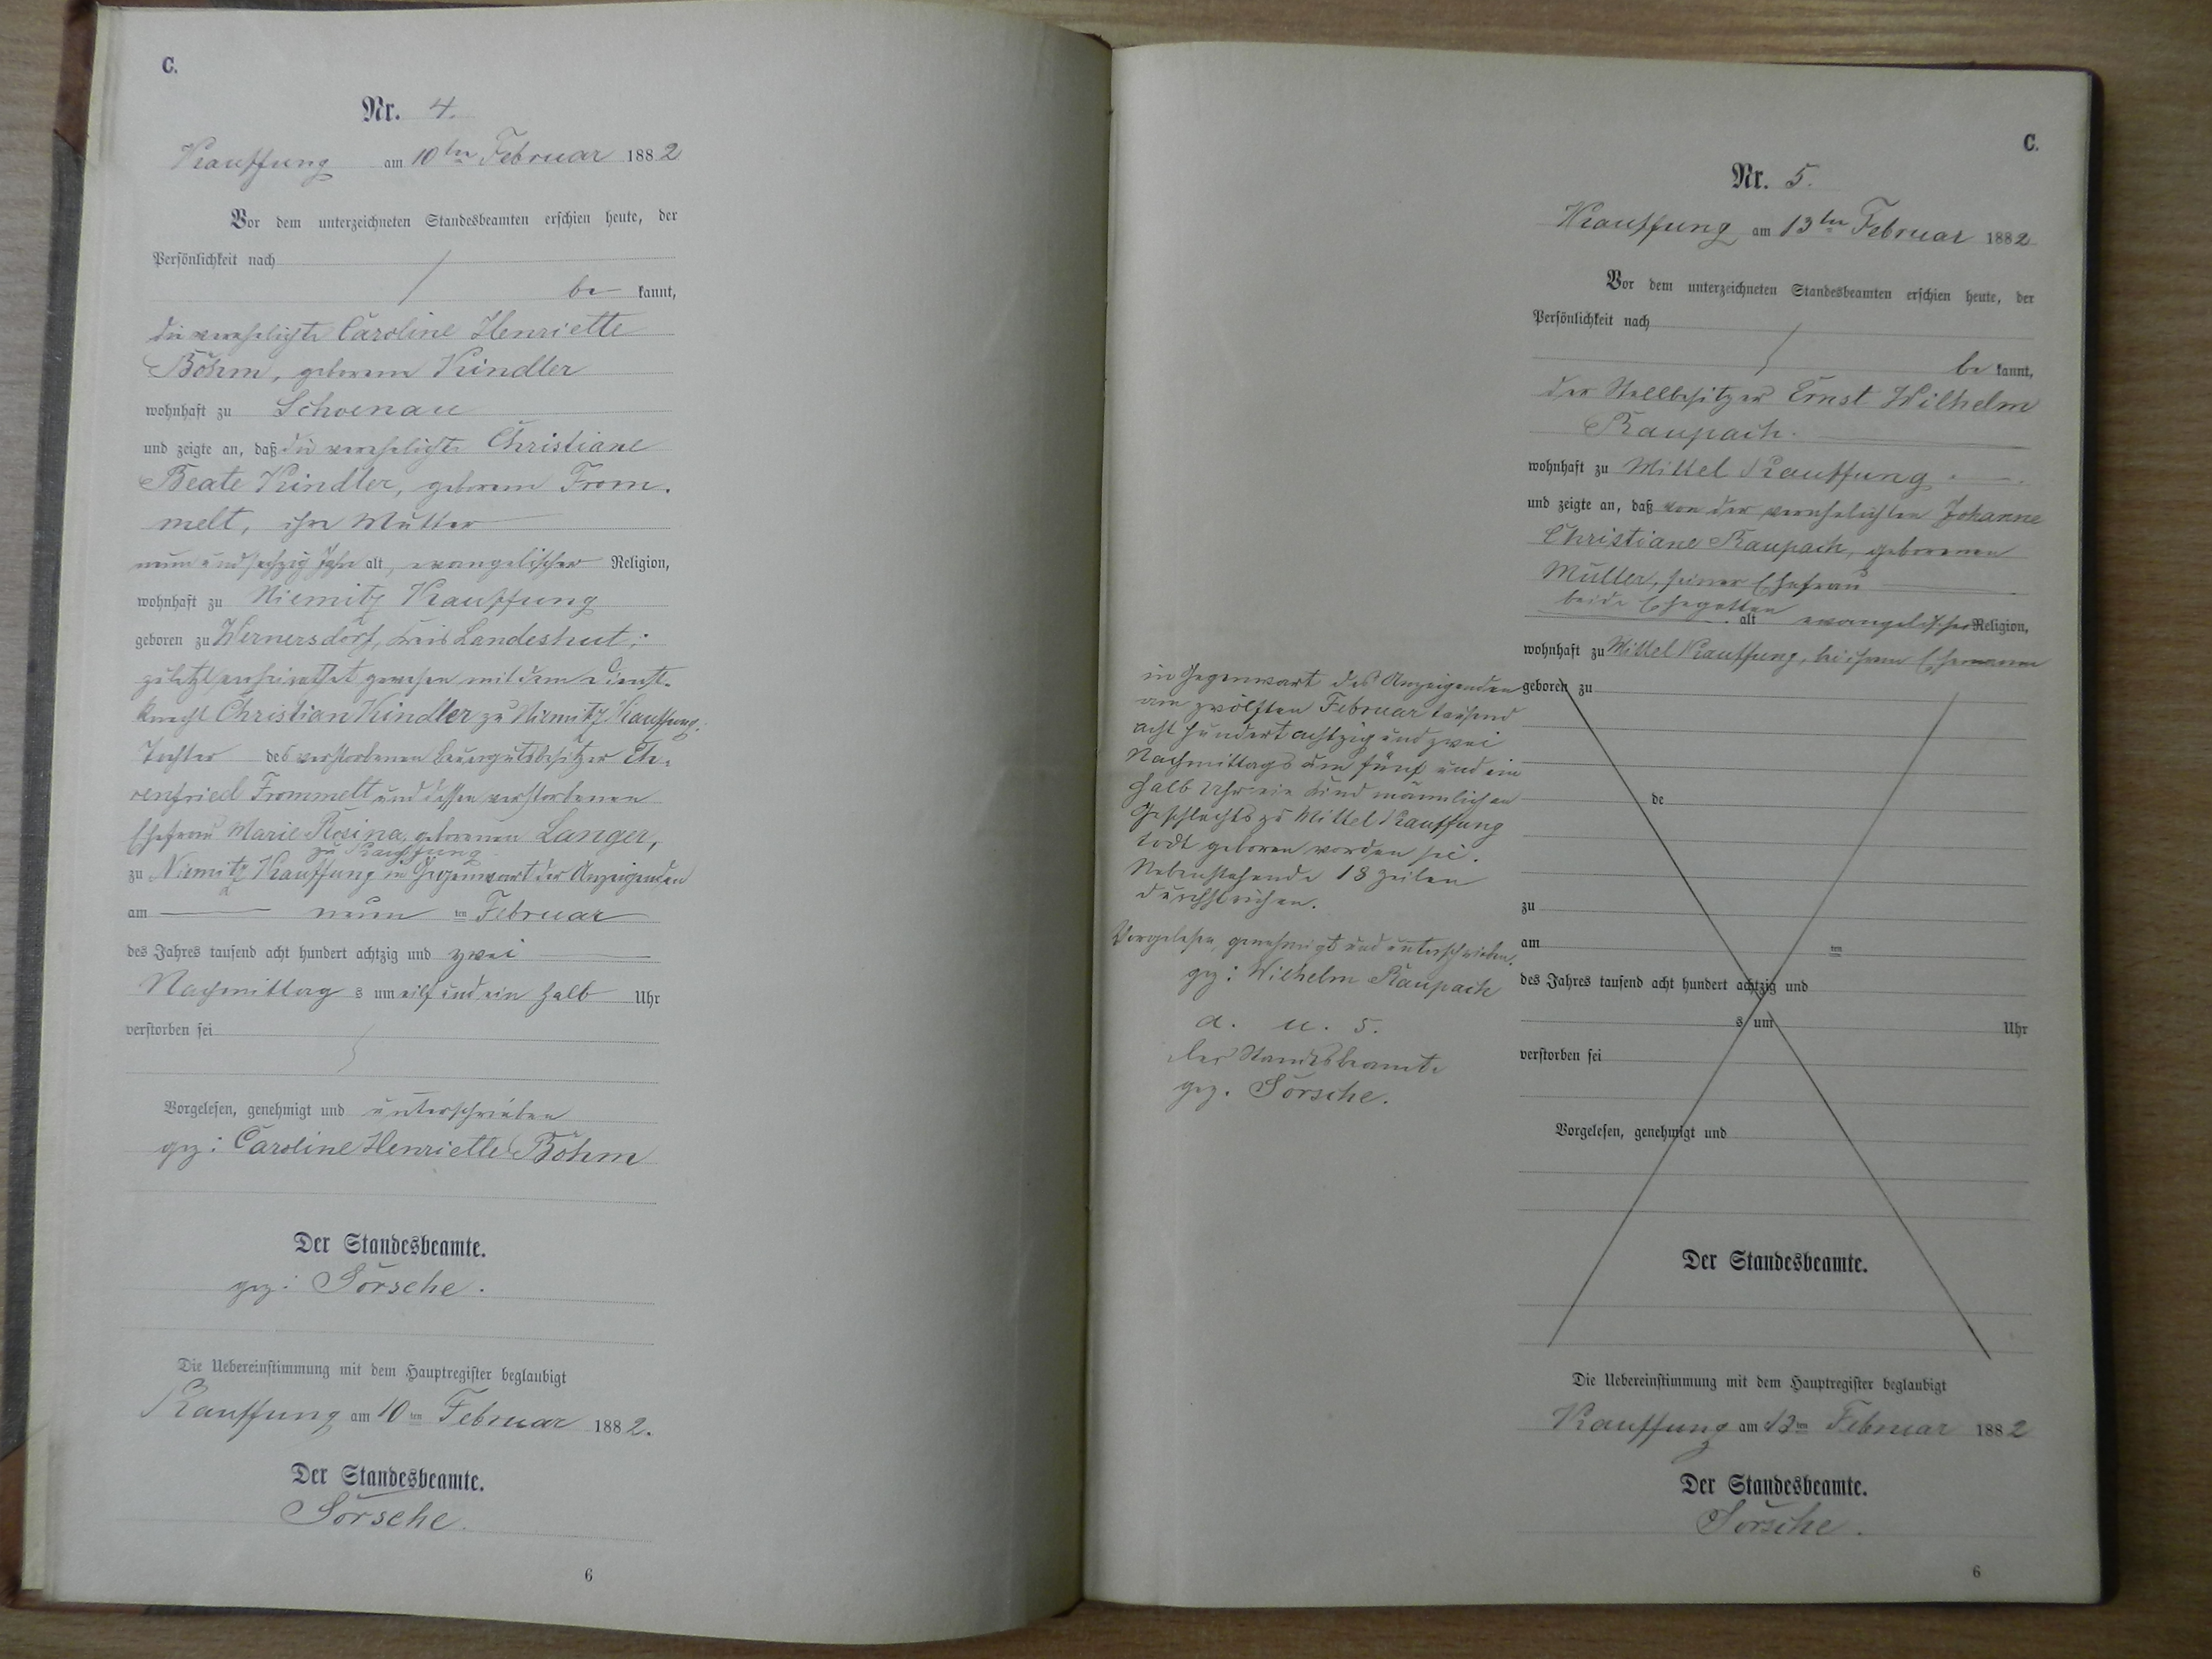 C.
Nr. 4.
Kauffung am 10ten Februar 1882
Vor dem unterzeichneten Standesbeamten erschien heute, der
Persönlichkeit nach
be kannt,
die verehelichte Caroline Henriette
Böhm, geborene Kindler
wohnhaft zu Schoenau
und zeigte an, daß die verehelichte Christiane
Beate Kindler, geborene From.
melt, ihre Mutter
neun und sechzig Jahr alt, evangelischer Religion,
wohnhaft zu Niemitz Kauffung
geboren zu Wernersdorf, Kreis Landeshut;
zuletzt verheirathet gewesen mit dem Dienst-
knecht Christian Kindler zu Niemitz Kauffung.
Tochter des verstorbenen Bauergutsbesitzer Eh.
renfried Frommelt und dessen verstorbenen
Ehefrau Marie Rosina, geborenen Langer,
zu Kauffung
zu Niemitz Kauffung in Gegenwart der Anzeigenden
am neun ten Februar
des Jahres tausend acht hundert achtzig und zwei
Nachmittag s um eilf und ein halb Uhr
verstorben sei
Vorgelesen, genehmigt und unterschrieben
gez: Caroline Henriette Böhm
Der Standesbeamte.
gez: Sörsche.
Die Uebereinstimmung mit dem Hauptregister beglaubigt
Kauffung am 10ten Februar 1882.
Der Standesbeamte.
Sörsche.
6
C.
Nr. 5.
Kauffung am 13ten Februar 1882
Vor dem unterzeichneten Standesbeamten erschien heute, der
Persönlichkeit nach
be kannt,
der Stellbesitzer Ernst Wilhelm
Raupach.
wohnhaft zu Mittel Kauffung
und zeigte an, daß von der verehelichten Johanne
Christiane Raupach, geborenen
Müller, seiner Ehefrau
beide Ehegatten
alt evangelischer Religion,
wohnhaft zu Mittel Kauffung, bei ihrem Ehemanne
in Gegenwart des Anzeigenden
am zwölften Februar tausend
acht hundert achtzig und zwei
Nachmittags um fünf und ein
halb Uhr ein Kind männlichen
Geschlechts zu Mittel Kauffung
todt geboren worden sei.
Nebenstehende 18 Zeilen
durchstrichen.
Vorgelesen, genehmigt und unterschrieben.
gez: Wilhelm Raupach
a. u. s.
Der Standesbeamte
gez. Sörsche.
geboren zu
de
zu
am ten
des Jahres tausend acht hundert achtzig und
s um Uhr
verstorben sei
Vorgelesen, genehmigt und
Der Standesbeamte.
Die Uebereinstimmung mit dem Hauptregister beglaubigt
Kauffung am 13ten Februar 1882
Der Standesbeamte.
Sörsche.
6